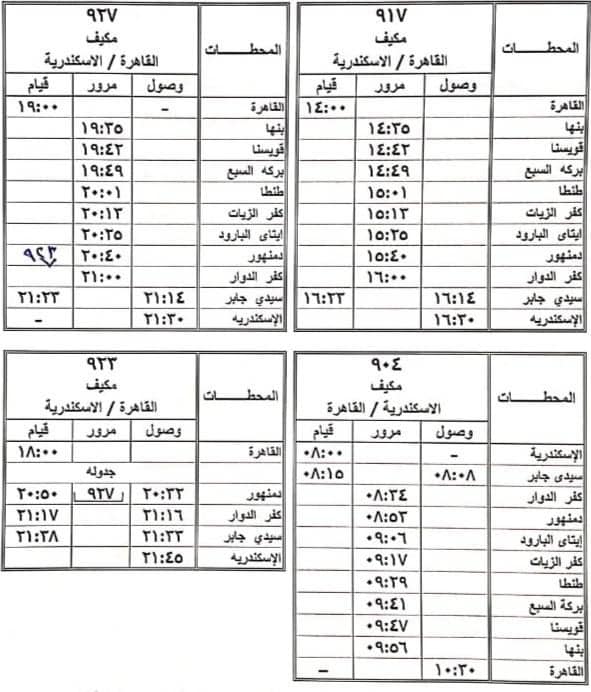 ٩١٧
مكيف
القاهرة / الاسكندرية
المحطــــــات
وصول مرور قيام
القاهرة ١٤:٠٠
بنها ١٤:٣٥
قويسنا ١٤:٤٢
بركه السبع ١٤:٤٩
طنطا ١٥:٠١
كفر الزيات ١٥:١٣
ايتاى البارود ١٥:٢٥
دمنهور ١٥:٤٠
كفر الدوار ١٦:٠٠
سيدي جابر ١٦:١٤ ١٦:٢٣
الإسكندريه ١٦:٣٠
٩٢٧
مكيف
القاهرة / الاسكندرية
المحطــــــات
وصول مرور قيام
القاهرة – ١٩:٠٠
بنها ١٩:٣٥
قويسنا ١٩:٤٢
بركه السبع ١٩:٤٩
طنطا ٢٠:٠١
كفر الزيات ٢٠:١٣
ايتاى البارود ٢٠:٢٥
دمنهور ٢٠:٤٠ ٩٢٣
كفر الدوار ٢١:٠٠
سيدي جابر ٢١:١٤ ٢١:٢٣
الإسكندريه ٢١:٣٠ –
٩٠٤
مكيف
الاسكندرية / القاهرة
المحطــــــات
وصول مرور قيام
الإسكندرية – ٠٨:٠٠
سيدى جابر ٠٨:٠٨ ٠٨:١٥
كفر الدوار ٠٨:٣٤
دمنهور ٠٨:٥٣
إيتاى البارود ٠٩:٠٦
كفر الزيات ٠٩:١٧
طنطا ٠٩:٢٩
بركة السبع ٠٩:٤١
قويسنا ٠٩:٤٧
بنها ٠٩:٥٦
القاهرة ١٠:٣٠ –
٩٢٣
مكيف
القاهرة / الاسكندرية
المحطــــــات
وصول مرور قيام
القاهرة ١٨:٠٠
جدوله
دمنهور ٢٠:٣٢ ٩٢٧ ٢٠:٥٠
كفر الدوار ٢١:١٦ ٢١:١٧
سيدي جابر ٢١:٣٣ ٢١:٣٨
الإسكندريه ٢١:٤٥